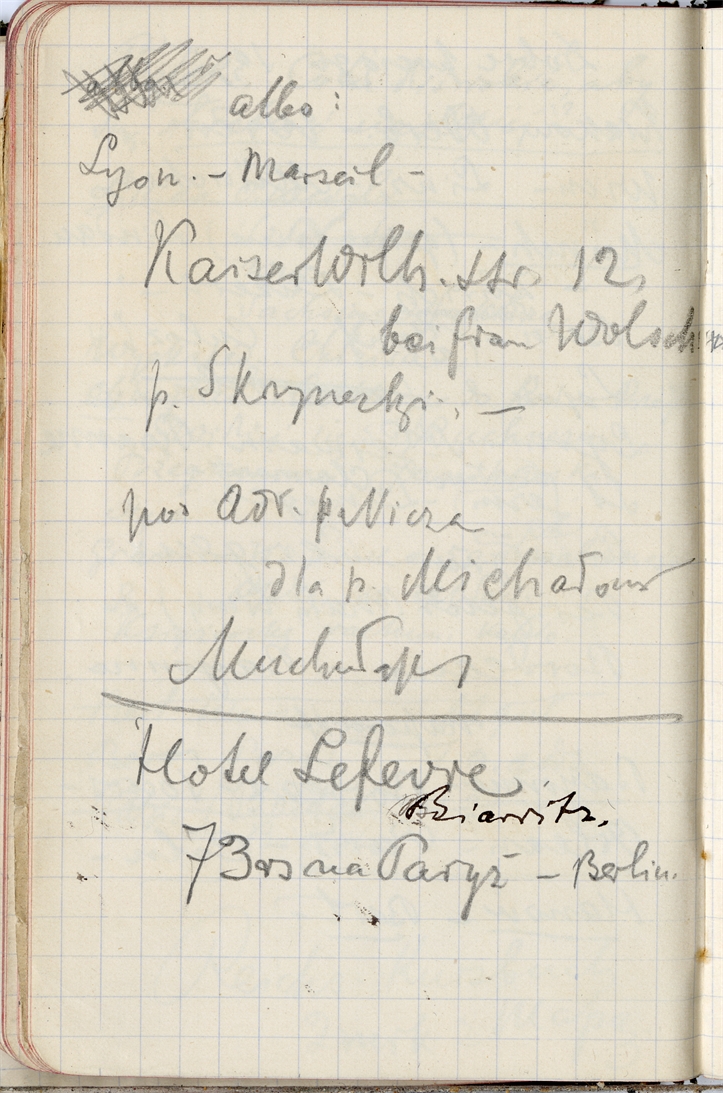 albo:
Lyon. - Marseil -
Kaiser Wilh. str. 12,
bei frau Wolsch
p. Skrzynecki. —
pod Adr. p. Nicza
dla p. Michałows
Hotel Lefevre
Biarritz.
na Paryż - Berlin.